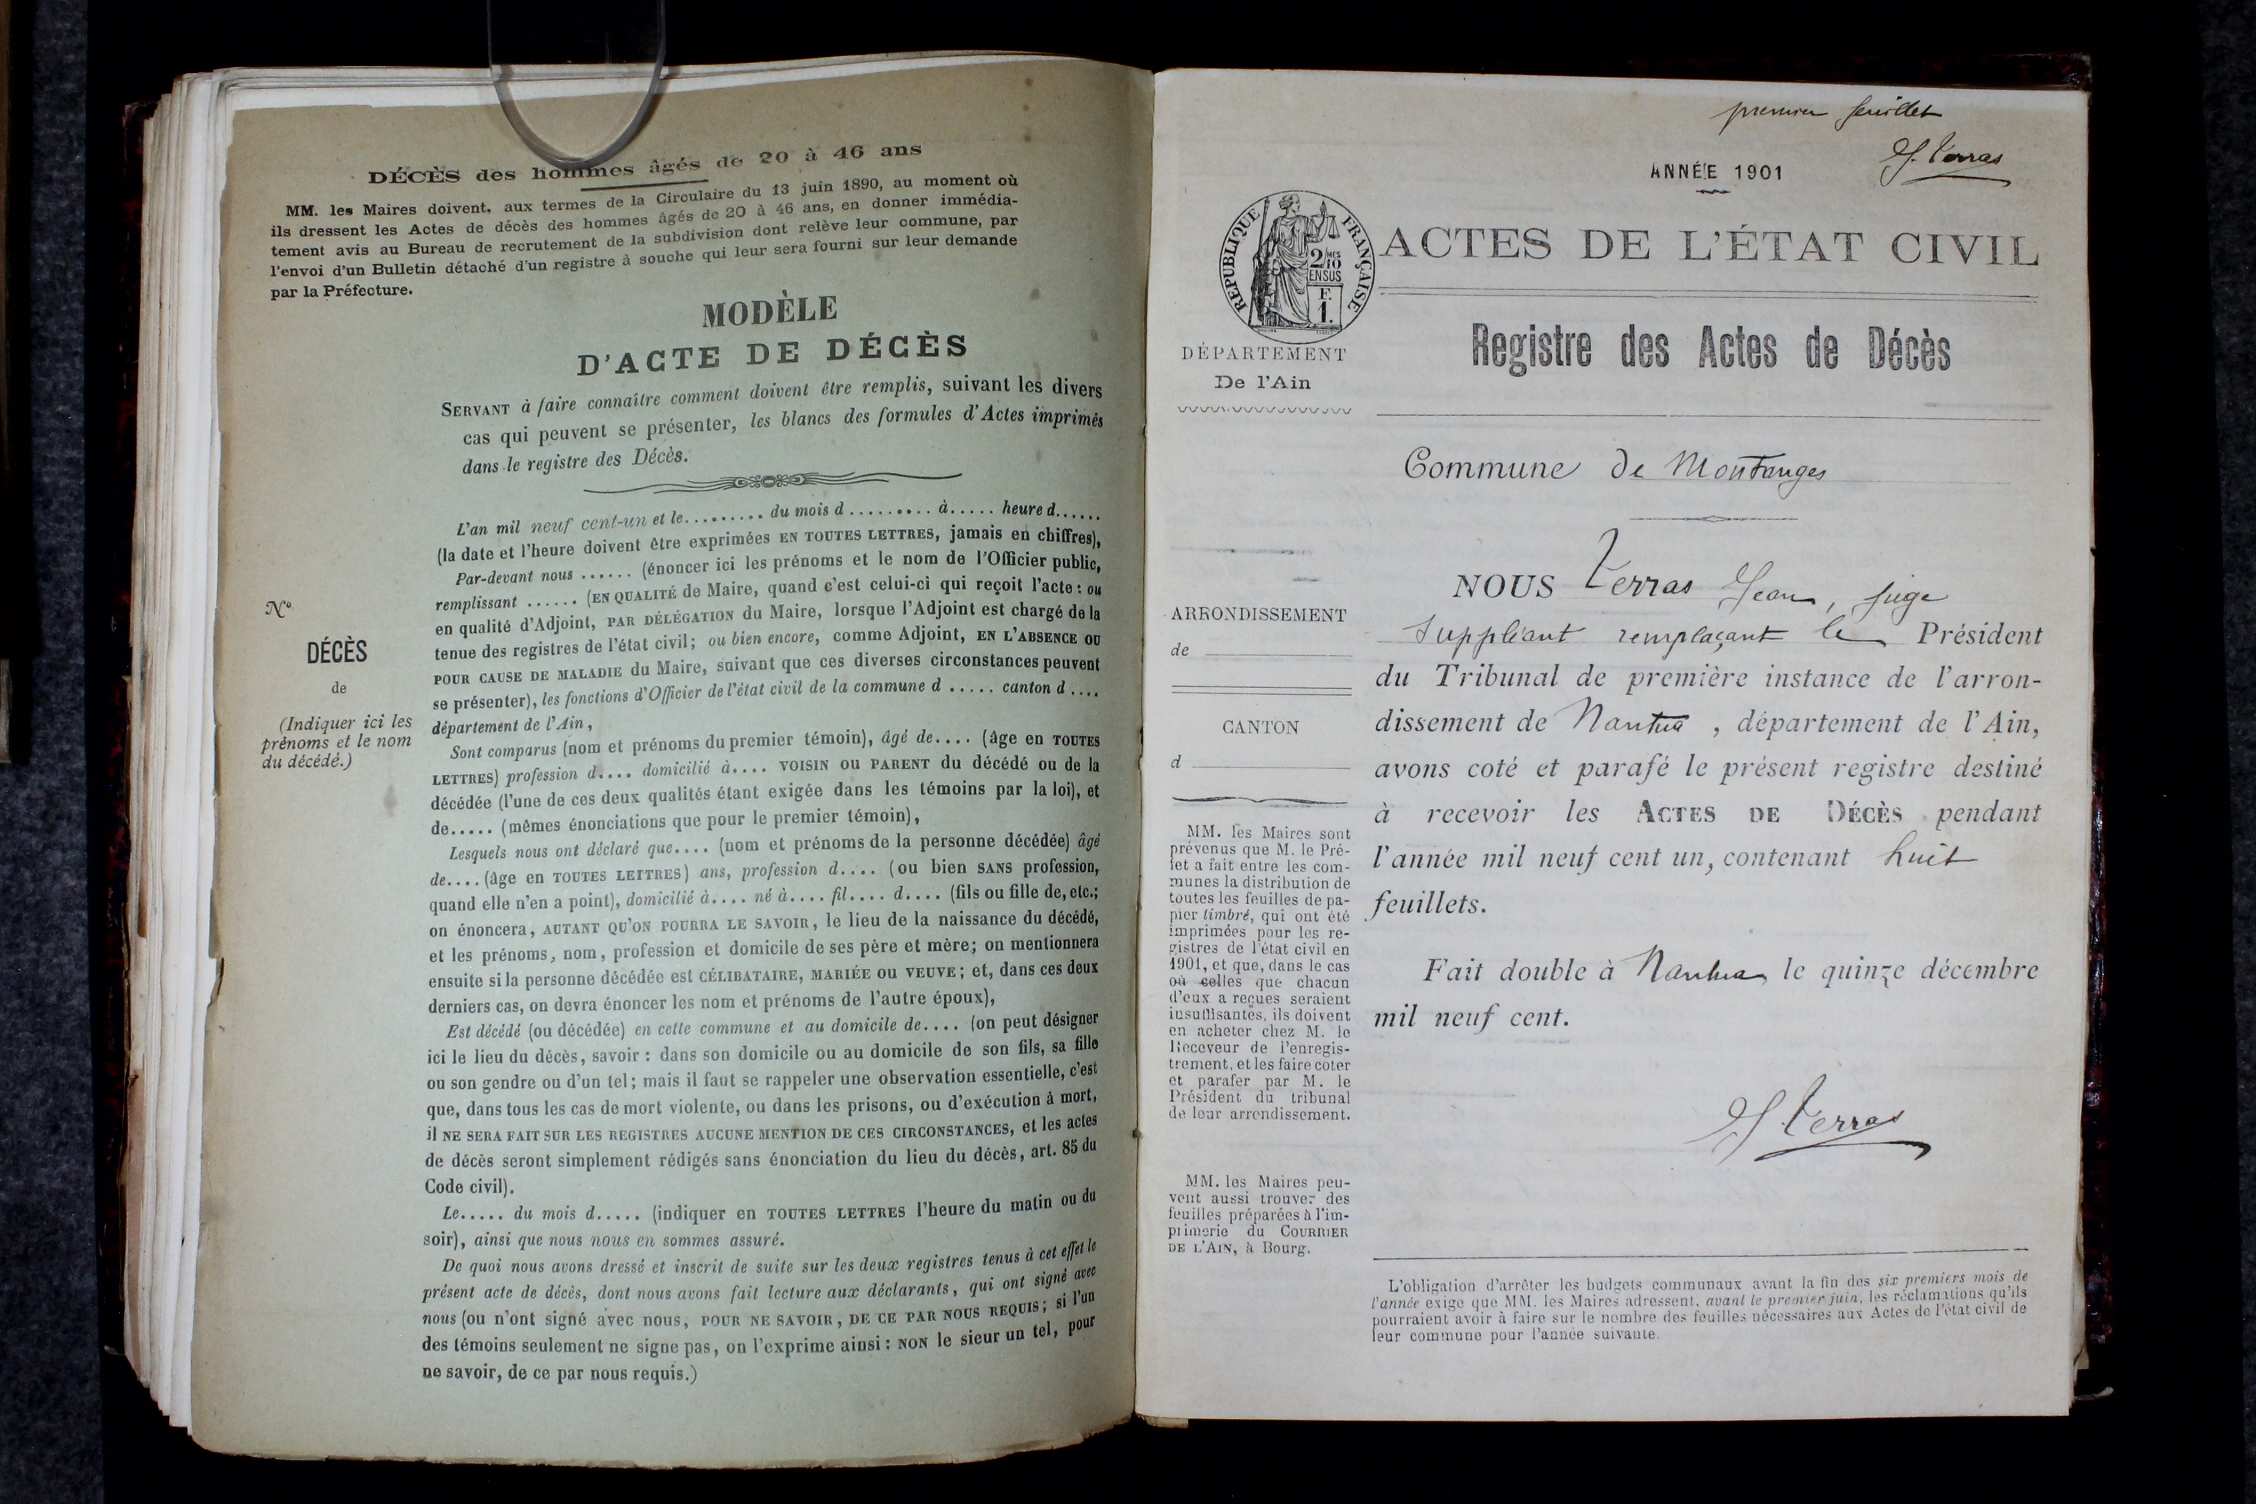 DÉCÈS des hommes âgés de 20 à 46 ans
MM. les Maires doivent, aux termes de la Circulaire du 13 juin 1890, au moment où
ils dressent les Actes de décès des hommes âgés de 20 à 46 ans, en donner immédia-
tement avis au Bureau de recrutement de la subdivision dont relève leur commune, par
l'envoi d'un Bulletin détaché d'un registre à souche qui leur sera fourni sur leur demande
par la Préfecture.
MODÈLE
D'ACTE DE DÉCÈS
SERVANT à faire connaître comment doivent être remplis, suivant les divers
cas qui peuvent se présenter, les blancs des formules d'Actes imprimés
dans le registre des Décès.
N°
DÉCÈS
de
(Indiquer ici les
prénoms et le nom
du décédé.)
L'an mil neuf cent-un et le......... du mois d ......... à..... heure d......
(la date et l'heure doivent être exprimées EN TOUTES LETTRES, jamais en chiffres),
Par-devant nous ...... (énoncer ici les prénoms et le nom de l'Officier public,
remplissant ...... (EN QUALITÉ de Maire, quand c'est celui-ci qui reçoit l'acte : ou
en qualité d'Adjoint, PAR DÉLÉGATION du Maire, lorsque l'Adjoint est chargé de la
tenue des registres de l'état civil; ou bien encore, comme Adjoint, EN L'ABSENCE OU
POUR CAUSE DE MALADIE du Maire, suivant que ces diverses circonstances peuvent
se présenter), les fonctions d'Officier de l'état civil de la commune d ..... canton d ....
département de l'Ain,
Sont comparus (nom et prénoms du premier témoin), âgé de.... (âge en TOUTES
LETTRES) profession d.... domicilié à.... VOISIN OU PARENT du décédé ou de la
décédée (l'une de ces deux qualités étant exigée dans les témoins par la loi), et
de..... (mêmes énonciations que pour le premier témoin),
Lesquels nous ont déclaré que.... (nom et prénoms de la personne décédée) âgé
de.... (âge en TOUTES LETTRES) ans, profession d.... (ou bien SANS profession,
quand elle n'en a point), domicilié à.... né à.... fil.... d.... (fils ou fille de, etc.;
on énoncera, AUTANT QU'ON POURRA LE SAVOIR, le lieu de la naissance du décédé,
et les prénoms, nom, profession et domicile de ses père et mère; on mentionnera
ensuite si la personne décédée est CÉLIBATAIRE, MARIÉE OU VEUVE; et, dans ces deux
derniers cas, on devra énoncer les nom et prénoms de l'autre époux),
Est décédé (ou décédée) en cette commune et au domicile de.... (on peut désigner
ici le lieu du décès, savoir : dans son domicile ou au domicile de son fils, sa fille
ou son gendre ou d'un tel; mais il faut se rappeler une observation essentielle, c'est
que, dans tous les cas de mort violente, ou dans les prisons, ou d'exécution à mort,
il NE SERA FAIT SUR LES REGISTRES AUCUNE MENTION DE CES CIRCONSTANCES, et les actes
de décès seront simplement rédigés sans énonciation du lieu du décès, art. 85 du
Code civil).
Le..... du mois d..... (indiquer en TOUTES LETTRES l'heure du matin ou du
soir), ainsi que nous nous en sommes assuré.
De quoi nous avons dressé et inscrit de suite sur les deux registres tenus à cet effet le
présent acte de décès, dont nous avons fait lecture aux déclarants, qui ont signé avec
nous (ou n'ont signé avec nous, POUR NE SAVOIR, DE CE PAR NOUS REQUIS; si l'un
des témoins seulement ne signe pas, on l'exprime ainsi : NON le sieur un tel, pour
ne savoir, de ce par nous requis.)
premier feuillet
J. Verras
ANNÉE 1901
RÉPUBLIQUE FRANÇAISE
2/10 MES
EN SUS
F.
1.
ACTES DE L'ÉTAT CIVIL
Registre des Actes de Décès
DÉPARTEMENT
De l'Ain
Commune de Montanges
ARRONDISSEMENT
de
CANTON
d
MM. les Maires sont
prévenus que M. le Pré-
fet a fait entre les com-
munes la distribution de
toutes les feuilles de pa-
pier timbré, qui ont été
imprimées pour les re-
gistres de l'état civil en
1901, et que, dans le cas
où celles que chacun
d'eux a reçues seraient
insuffisantes, ils doivent
en acheter chez M. le
Receveur de l'enregis-
trement, et les faire coter
et parafer par M. le
Président du tribunal
de leur arrondissement.
MM. les Maires peu-
vent aussi trouver des
feuilles préparées à l'im-
primerie du COURRIER
DE L'AIN, à Bourg.
NOUS Verras Jean, juge
suppléant remplaçant le Président
du Tribunal de première instance de l'arron-
dissement de Nantua, département de l'Ain,
avons coté et parafé le présent registre destiné
à recevoir les ACTES DE DÉCÈS pendant
l'année mil neuf cent un, contenant huit
feuillets.
Fait double à Nantua le quinze décembre
mil neuf cent.
J. Verras
L'obligation d'arrêter les budgets communaux avant la fin des six premiers mois de
l'année exige que MM. les Maires adressent, avant le premier juin, les réclamations qu'ils
pourraient avoir à faire sur le nombre des feuilles nécessaires aux Actes de l'état civil de
leur commune pour l'année suivante.